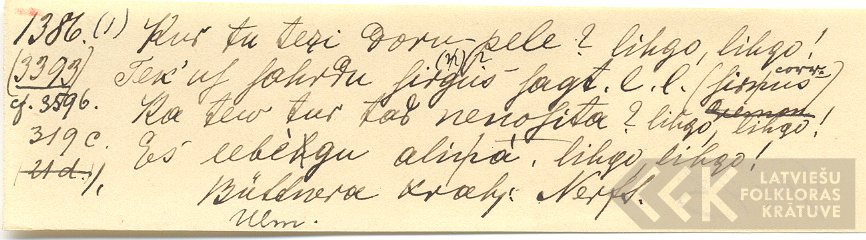 1386. (1) Kur tu tezi doru-pele? lihgo, lihgo!
(3393) Tek' us sahrdu sirgus sagt. l. l. (sirņus corr.)
cf. 3596. Ka tew tur tad nenosita? lihgo, lihgo!
319 c. Es eebehgu aliņā. lihgo, lihgo!
(21 d.)
Büttnera krahj. Nerft.
Ulm.
LATVIEŠU
FOLKLORAS
KRĀTUVE